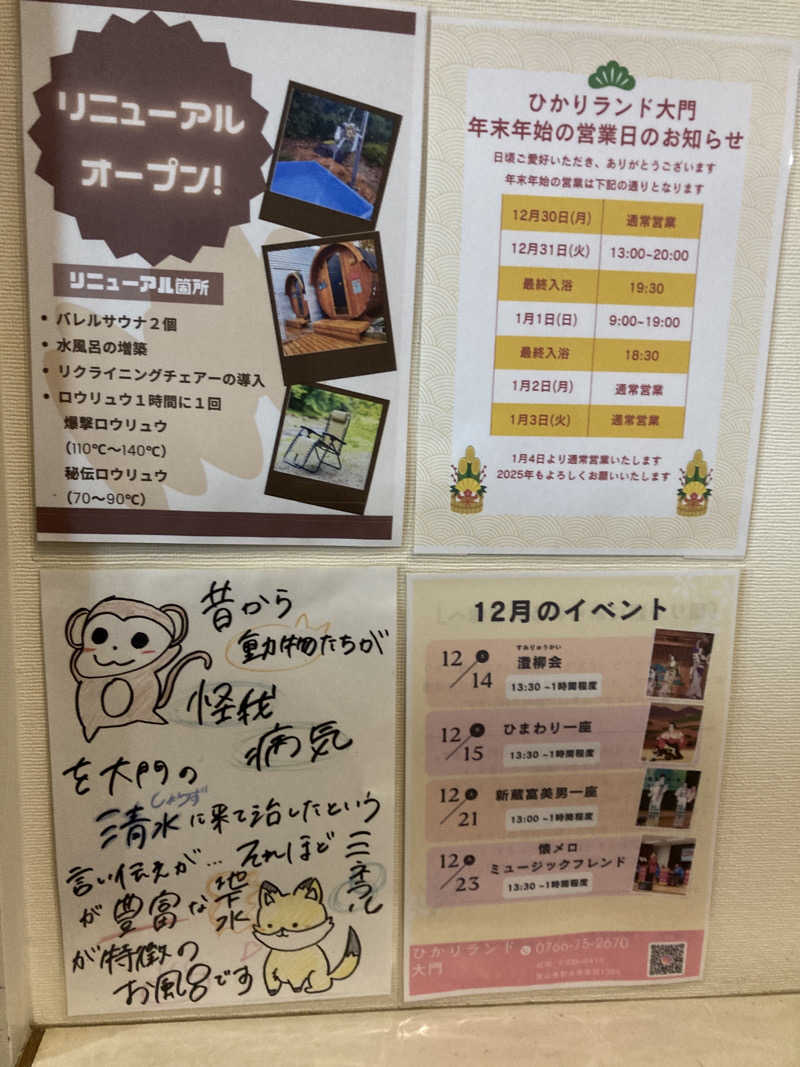 リニューアル
オープン!
リニューアル箇所
• バレルサウナ２個
• 水風呂の増築
• リクライニングチェアーの導入
• ロウリュウ１時間に１回
爆撃ロウリュウ
（110℃〜140℃）
秘伝ロウリュウ
（70〜90℃）
ひかりランド大門
年末年始の営業日のお知らせ
日頃ご愛好いただき、ありがとうございます
年末年始の営業は下記の通りとなります
12月30日(月) 通常営業
12月31日(火) 13:00~20:00
最終入浴 19:30
1月1日(日) 9:00~19:00
最終入浴 18:30
1月2日(月) 通常営業
1月3日(火) 通常営業
1月4日より通常営業いたします
2025年もよろしくお願いいたします
昔から
動物たちが
怪我
病気
を大門の
しょうず
清水に来て治したという
言い伝えが… それほどミネラル
が豊富な地下水
が特徴の
お風呂です
12月のイベント
12/14
すみりゅうかい
澄柳会
13:30 ~1時間程度
12/15
ひまわり一座
13:30 ~1時間程度
12/21
新蔵富美男一座
13:00 ~1時間程度
12/23
懐メロ
ミュージックフレンド
13:30 ~1時間程度
ひかりランド
大門
0766-75-2670